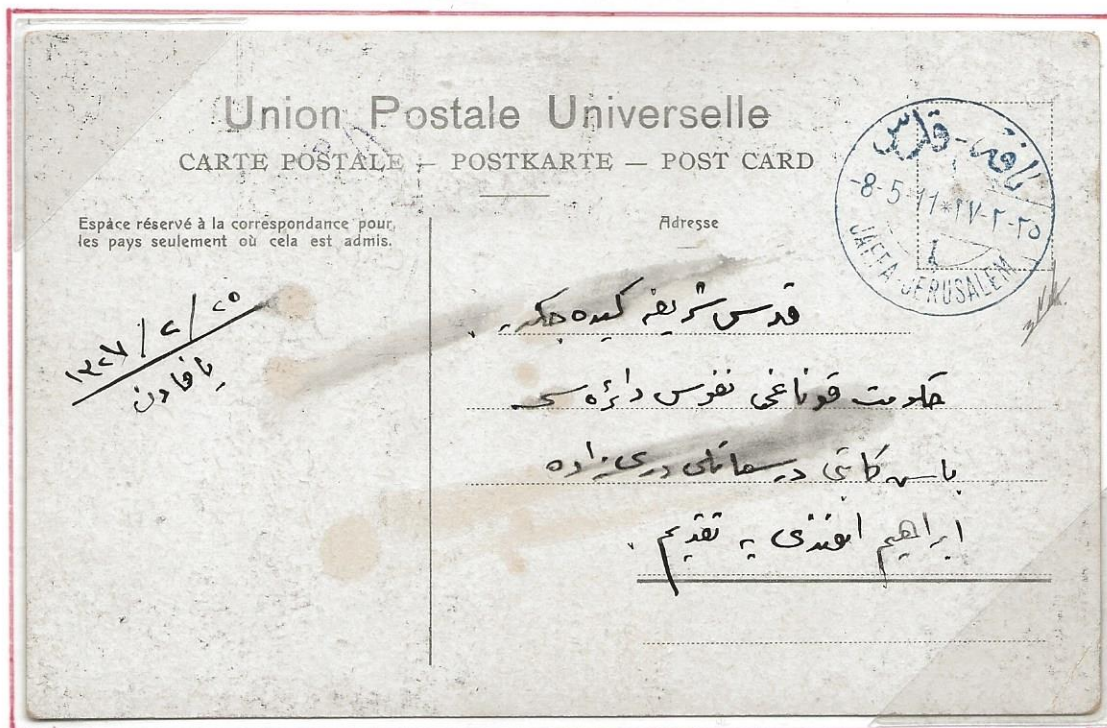 Union Postale Universelle
CARTE POSTALE — POSTKARTE — POST CARD
Espace réservé à la correspondance pour
les pays seulement où cela est admis.
Adresse
يافه - قدس
-8-5-11*٢٧-٢-٢٥
JAFFA-JERUSALEM
١٣٢٧/٢/٢٥
يافادن
قدس شريفه كيده جكدر.
حكومت قوناغى نفوس دائره سى
باش كاتبى
ابراهيم افندى يه تقديم.